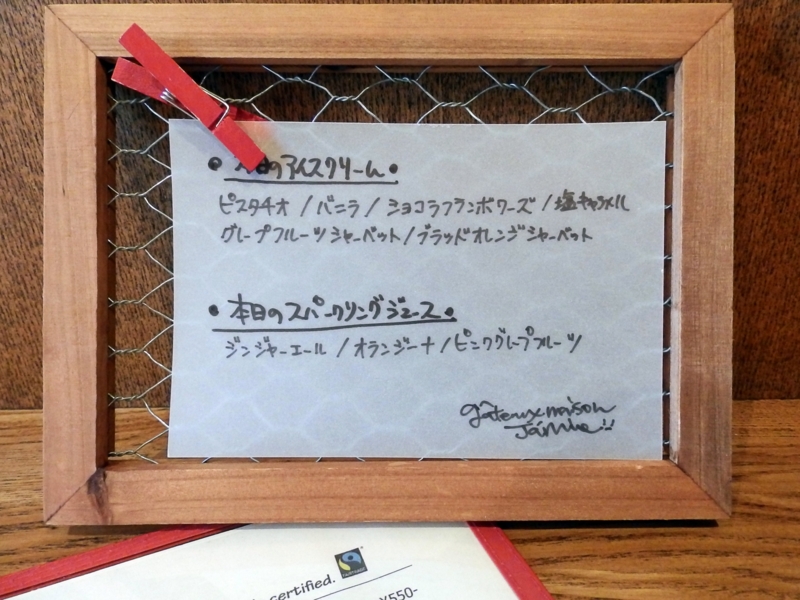 • 本日のアイスクリーム •
ピスタチオ / バニラ / ショコラフランボワーズ / 塩キャラメル
グレープフルーツシャーベット / ブラッドオレンジシャーベット
• 本日のスパークリングジュース •
ジンジャーエール / オランジーナ / ピンクグレープフルーツ
gâteaux maison
certified.
¥550-